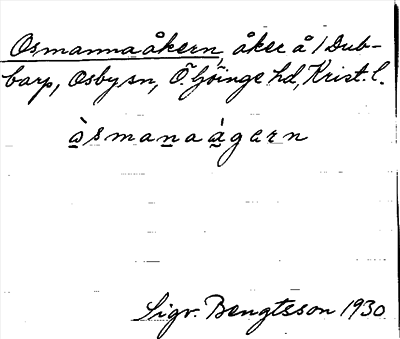 Osmannaåkern, åker å 1 Dub-
barp, Osby sn, Ö. Göinge hd, Krist. l.
ùsmanaágarn
Sigv. Bengtsson 1930